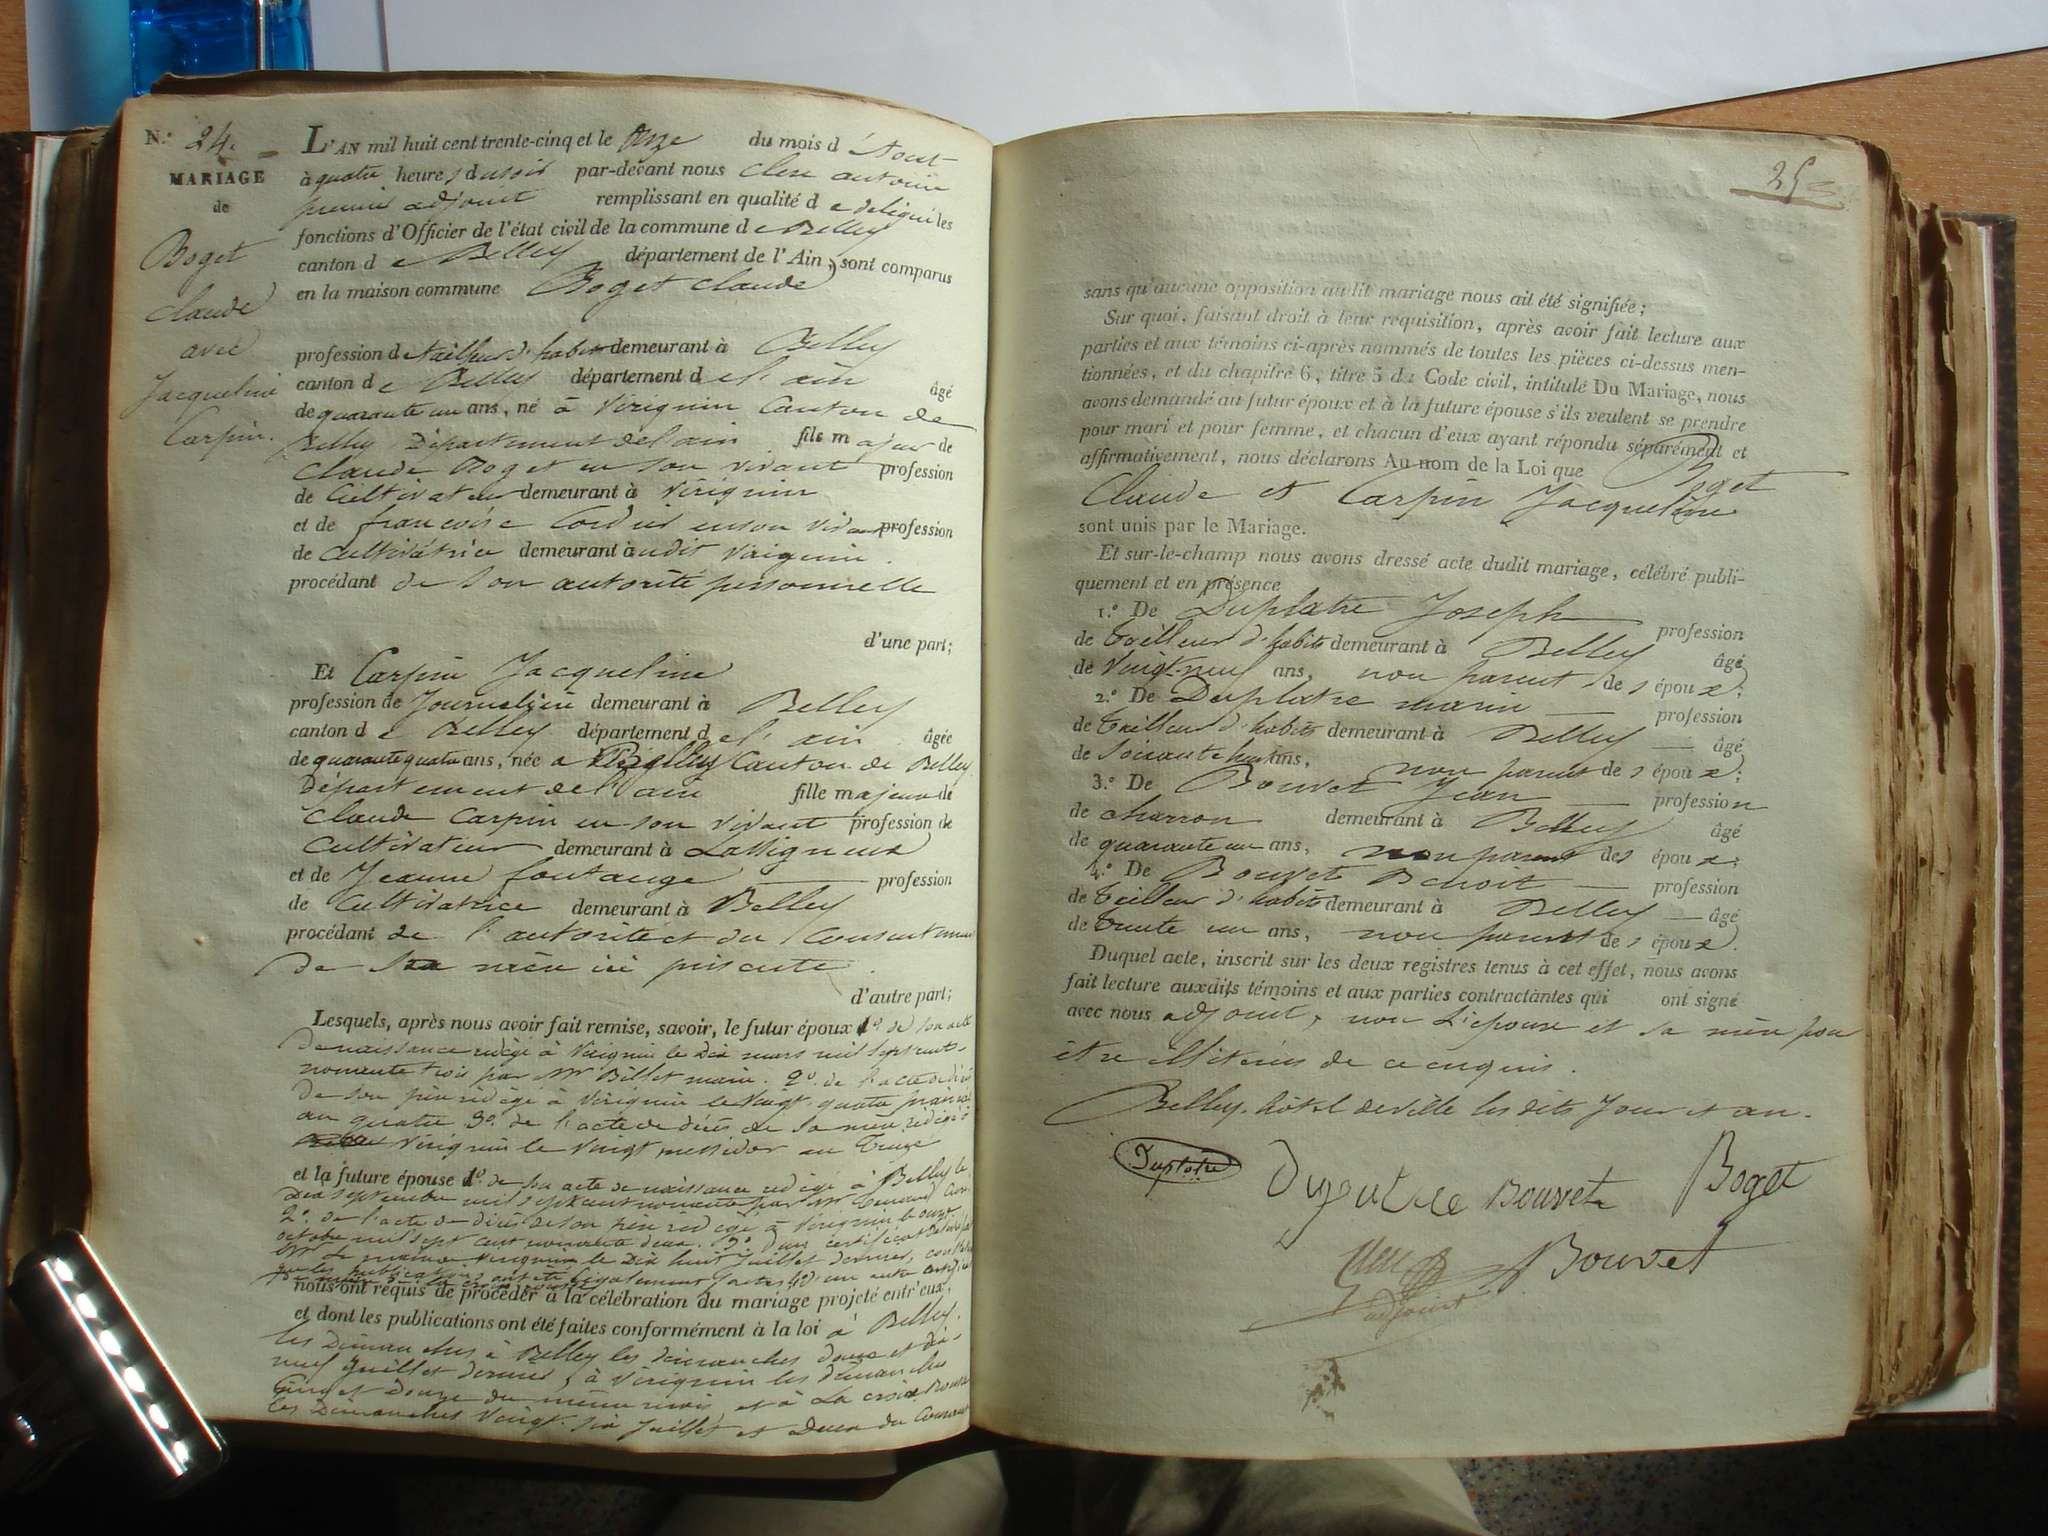 N.º 24.
MARIAGE
de
Boget
Claude
avec
Jacqueline
Carpin.
L'AN mil huit cent trente-cinq et le onze du mois d'Aout
à quatre heures du soir par-devant nous Clerc antoine
premier adjoint remplissant en qualité de délégué les
fonctions d'Officier de l'état civil de la commune de Belley
canton de Belley département de l'Ain, sont comparus
en la maison commune Boget Claude
profession de tailleur d'habits demeurant à Belley
canton de Belley département de l'ain âgé
de quarante un ans, né à Virignin Canton de
Belley Département de l'ain fils majeur de
Claude Boget en son vivant profession
de Cultivateur demeurant à Virignin
et de francoise en son vivant profession
de Cultivatrice demeurant audit Virignin.
procédant de son autorité personnelle
d'une part;
Et Carpin Jacqueline
profession de Journalière demeurant à Belley
canton de Belley département de l'ain âgée
de quarante quatre ans, née a Canton de Belley
Département de l'ain fille majeure de
Claude Carpin en son vivant profession de
Cultivateur demeurant à Lassignieu
et de Jeanne fontange profession
de Cultivatrice demeurant à Belley
procédant de l'autorité et du Consentement
de sa mère ici présente.
d'autre part;
Lesquels, après nous avoir fait remise, savoir, le futur époux 1º de son acte
de naissance rédigé à Virignin le Dix mars mil sept cent
nonante trois par Mr Billet maire. 2º. de l'acte de décès
de son père rédigé à Virignin le Vingt quatre prairial
an quatre 3º. de l'acte de décès de sa mère rédigé à
Virignin le Vingt messidor an Treize
et la future épouse 1º de son acte de naissance rédigé à Belley le
Dix septembre mil sept cent nonante par Mr Curé
2º. de l'acte de décès de son père rédigé à Virignin le onze
octobre mil sept cent nonante deux. 3º D'un certificat délivré par
Mr Le maire de Virignin le Dix huit Juillet dernier,
que les publications ont été légalement faites 4º d'un autre certificat
nous ont requis de procéder à la célébration du mariage projeté entr'eux,
et dont les publications ont été faites conformément à la loi à Belley.
les Dimanches à Belley les dimanches douze et dix-
neuf Juillet dernier, à Virignin les dimanches
Cinq et Douze du même mois et à La croix Rousse
les Dimanches Vingt-six Juillet et Deux du Courant
25
sans qu'aucune opposition audit mariage nous ait été signifiée;
Sur quoi, faisant droit à leur requisition, après avoir fait lecture aux
parties et aux témoins ci-après nommés de toutes les pièces ci-dessus men-
tionnées, et du chapitre 6, titre 5 du Code civil, intitulé Du Mariage, nous
avons demandé au futur époux et à la future épouse s'ils veulent se prendre
pour mari et pour femme, et chacun d'eux ayant répondu séparément et
affirmativement, nous déclarons Au nom de la Loi que Boget
Claude et Carpin Jacqueline
sont unis par le Mariage.
Et sur-le-champ nous avons dressé acte dudit mariage, célébré publi-
quement et en présence
1.º De Duplatre Joseph profession
de Tailleur d'habits demeurant à Belley âgé
de Vingt-neuf ans, non parent des époux;
2.º De Duplatre marin profession
de Tailleur d'habits demeurant à Belley âgé
de Soixante huit ans, non parent des époux;
3.º De Bouvet Jean profession
de charron demeurant à Belley âgé
de quarante un ans, non parent des époux;
4.º De Bouvet Benoit profession
de Tailleur d'habits demeurant à Belley âgé
de Trente un ans, non parent des époux.
Duquel acte, inscrit sur les deux registres tenus à cet effet, nous avons
fait lecture auxdits témoins et aux parties contractantes qui ont signé
avec nous adjoint, non L'épouse et sa mère pour
être illitérées de ce enquis.
Belley, hôtel de ville les dits Jour et an.
Duplatre
Bouvet Boget
Bouvet
adjoint